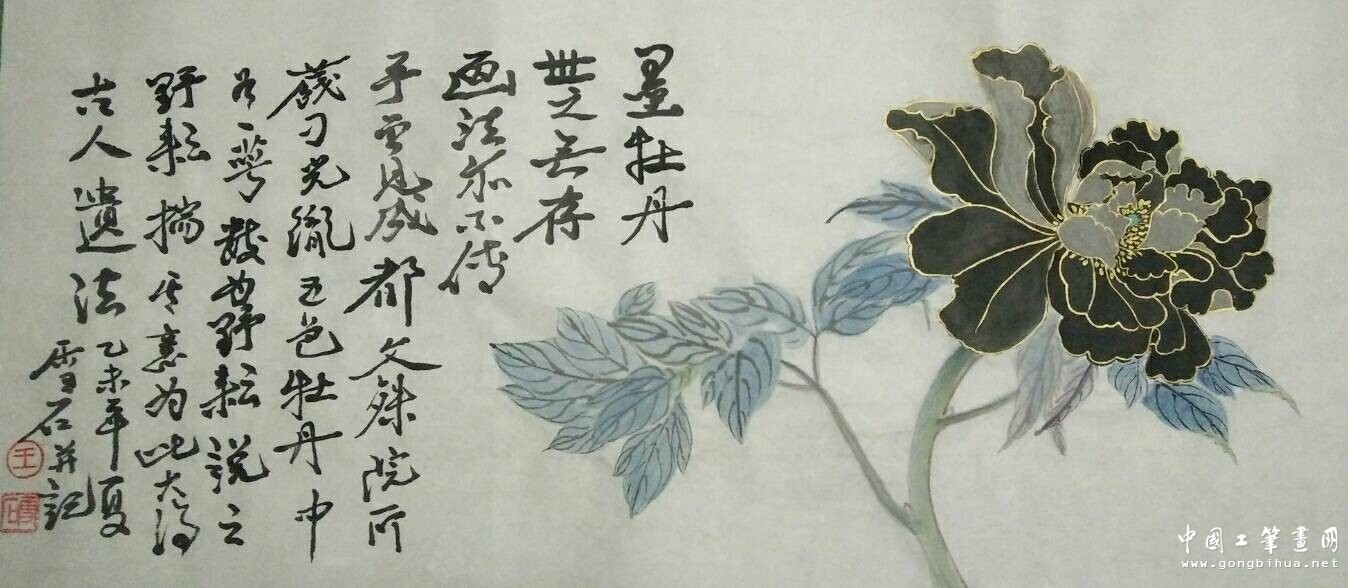 墨牡丹
世之无存
画法亦不传
予曾见成都文殊院所
藏刁光胤五色牡丹中
有一萼数为野耘説之
野耘揣其意为此大得
古人遺法乙未年夏
雪石并記
王
中國工筆畫网
www.gongbihua.net